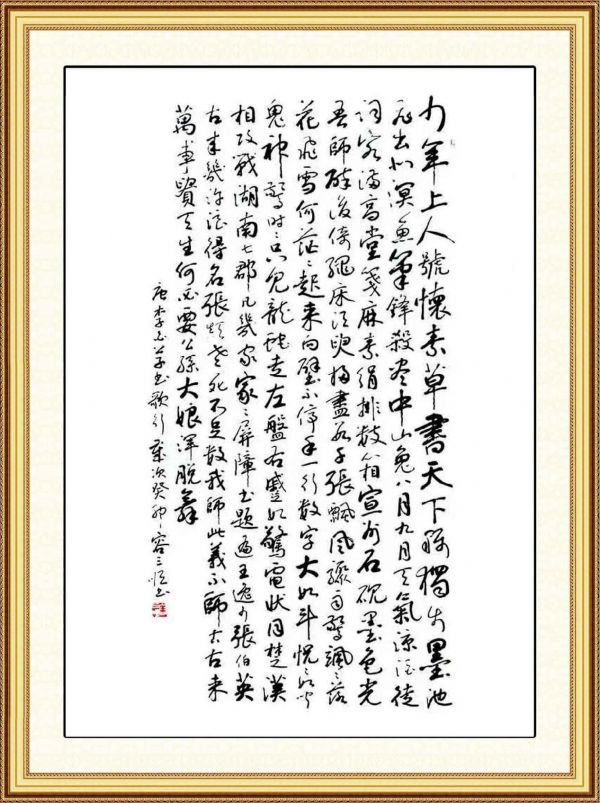 少年上人號懷素草書天下稱獨步墨池
飛出北溟魚筆鋒殺盡中山兔八月九月天氣涼酒徒
詞客滿高堂箋麻素絹排數箱宣州石硯墨色光
吾師醉後倚繩床須臾掃盡數千張飄風驟雨驚颯々落
花飛雪何茫々起來向壁不停手一行數字大如斗怳々如聞
鬼神驚時々只見龍蛇走左盤右蹙如驚電狀同楚漢
相攻戰湖南七郡凡幾家家々屏障書題遍王逸少張伯英
古來幾許浪得名張顛老死不足數我師此義不師古古來
萬事貴天生何必要公孫大娘渾脫舞
唐李白草書歌行歲次癸卯容三書